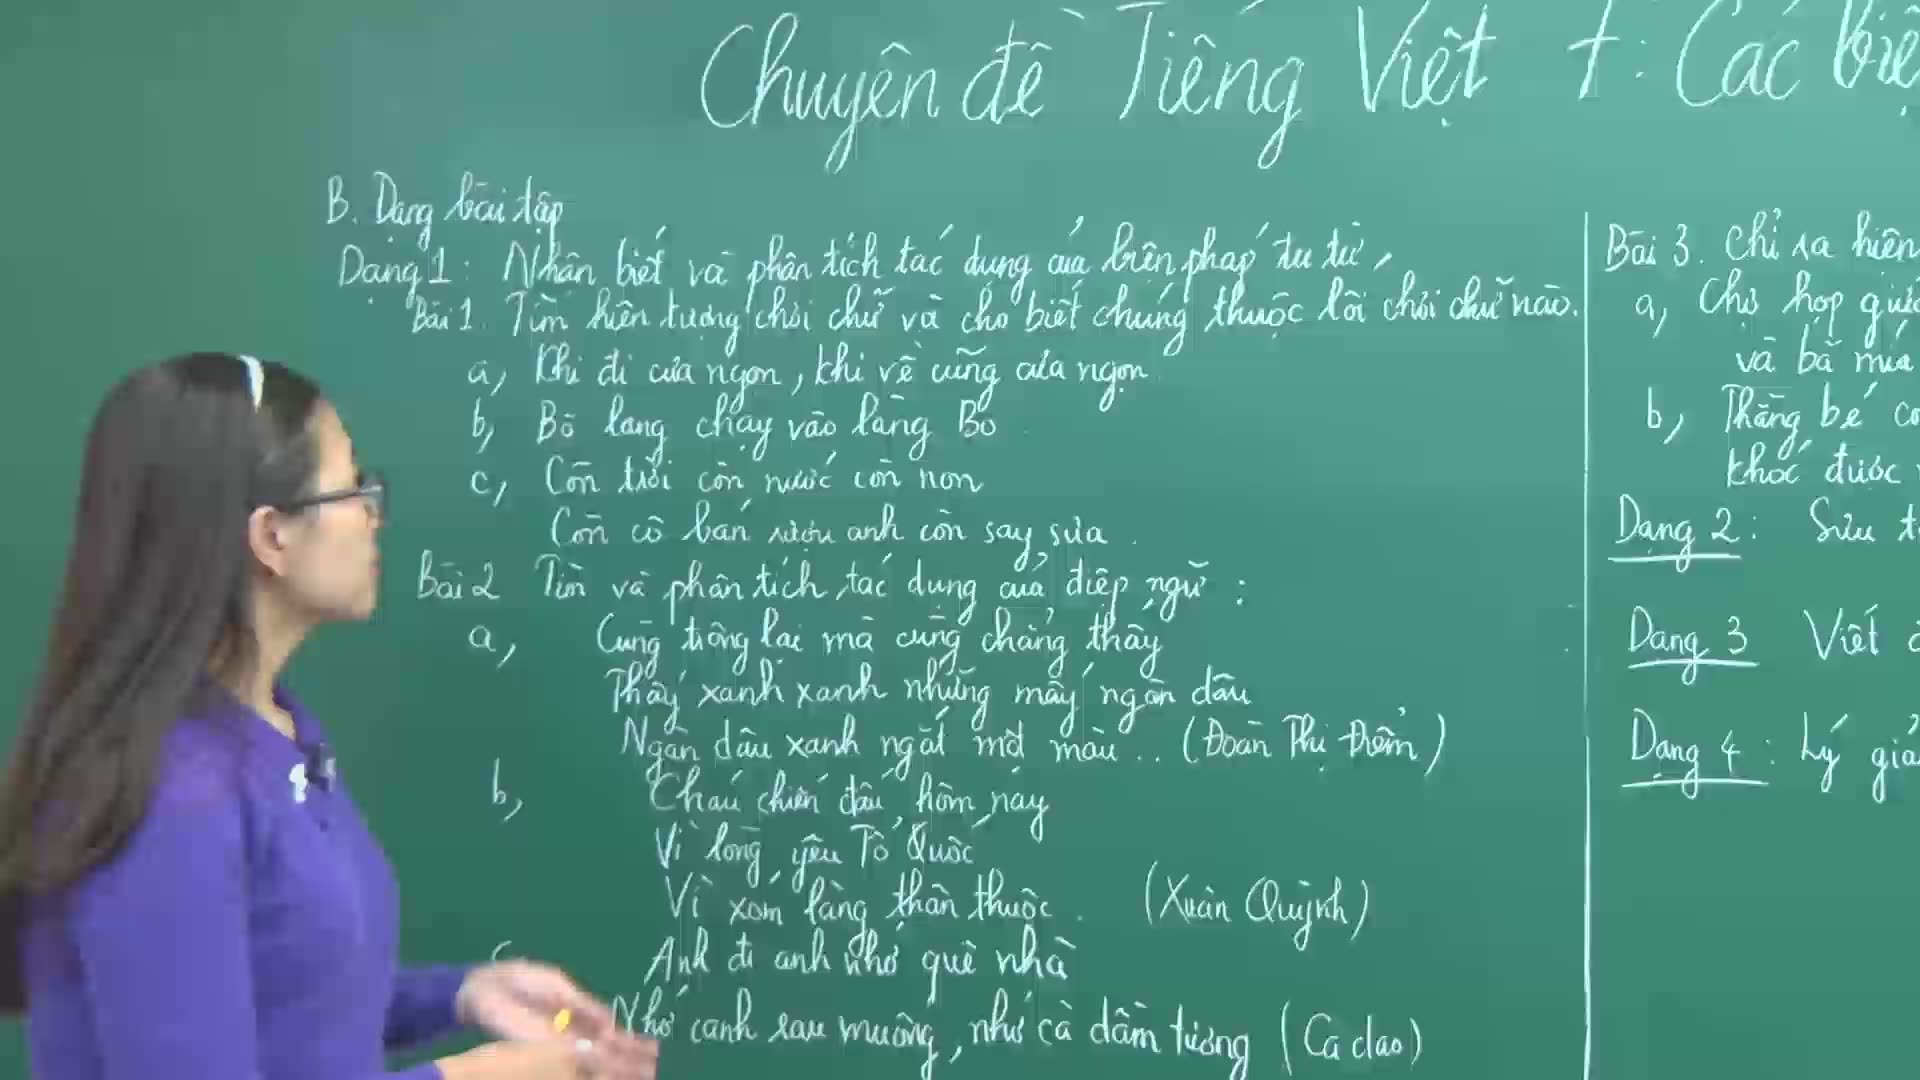 Chuyên đề Tiếng Việt 7: Các biệ
B. Dạng bài tập
Dạng 1: Nhận biết và phân tích tác dụng của biện pháp tu từ,
Bài 1. Tìm hiện tượng chơi chữ và cho biết chúng thuộc lối chơi chữ nào.
a, Khi đi cưa ngọn, khi về cũng cưa ngọn
b, Bò lang chạy vào làng Bo
c, Còn trời còn nước còn non
Còn cô bán rượu anh còn say sưa.
Bài 2 Tìm và phân tích tác dụng của điệp ngữ:
a, Cùng trông lại mà cùng chẳng thấy
Thấy xanh xanh những mấy ngàn dâu
Ngàn dâu xanh ngắt một màu.. (Đoàn Thị Điểm)
b, Cháu chiến đấu hôm nay
Vì lòng yêu Tổ Quốc
Vì xóm làng thân thuộc. (Xuân Quỳnh)
c Anh đi anh nhớ quê nhà
Nhớ canh rau muống, nhớ cà dầm tương (Ca dao)
Bài 3. Chỉ ra hiện
a, Chợ họp giữa
và bã mía
b, Thằng bé co
khóc được
Dạng 2: Sưu t
Dạng 3 Viết
Dạng 4: Lý giả